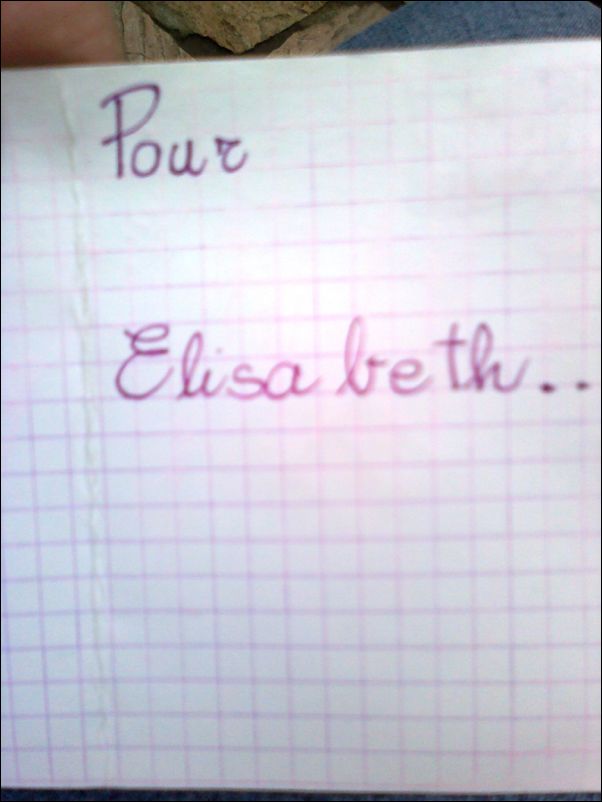 Pour
Elisabeth..